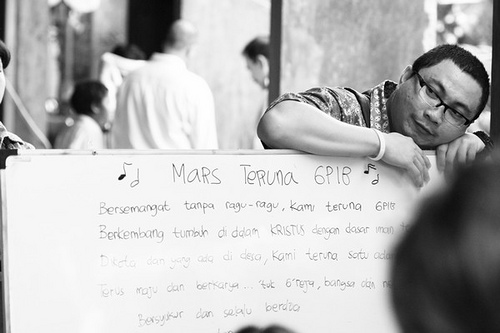 MARS TERUNA GPIB
Bersemangat tanpa ragu-ragu, kami teruna GPIB
Berkembang tumbuh di dalam KRISTUS dengan dasar iman
Di kota dan yang ada di desa, kami teruna satu adan
Terus maju dan berkarya... tuk G'reja, bangsa dan n
Bersyukur dan selalu berdoa